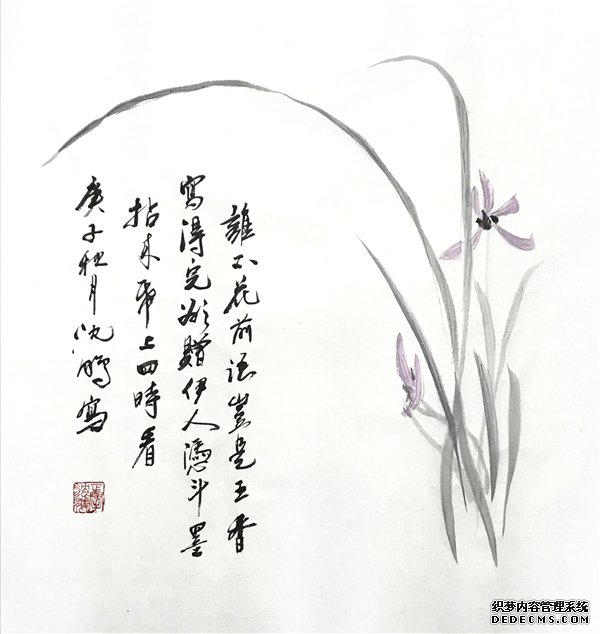 花前語豈是王香
寫得完欲贈伊人憑斗墨
拈来帋上四時看
庚子秋月沈鵬寫
织梦内容管理系统
DEDECMS.COM